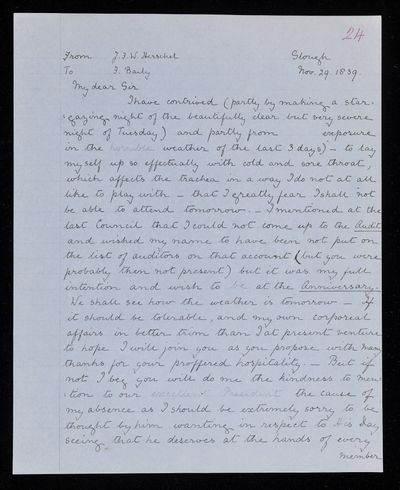 24
From J. F. W. Herschel Slough
To F. Baily Nov. 29. 1839.
My dear Sir
I have contrived (partly by making a star-
gazing night of the beautifully clear but very severe
night of Tuesday) and partly from exposure
in the horrible weather of the last 3 days) – to lay
myself up so effectually with cold and sore throat,
which affects the trachea in a way I do not at all
like to play with – that I greatly fear I shall not
be able to attend tomorrow. – I mentioned at the
last Council that I could not come up to the Audit
and wished my name to have been not put on
the list of auditors on that account (but you were
probably then not present) but it was my full
intention and wish to be at the Anniversary.
We shall see how the weather is tomorrow – If
it should be tolerable, and my own corporeal
affairs in better trim than I at present venture
to hope I will join you as you propose with many
thanks for your proffered hospitality. – But if
not I beg you will do me the kindness to men
tion to our excellent President the cause of
my absence as I should be extremely sorry to be
thought by him wanting in respect to His day
seeing that he deserves at the hands of every
member